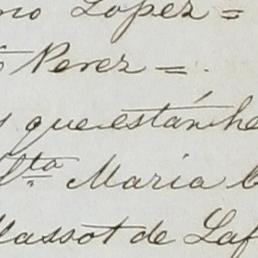 no Lopez =
Perez =
y que están he
lta Maria
Massot de Laf